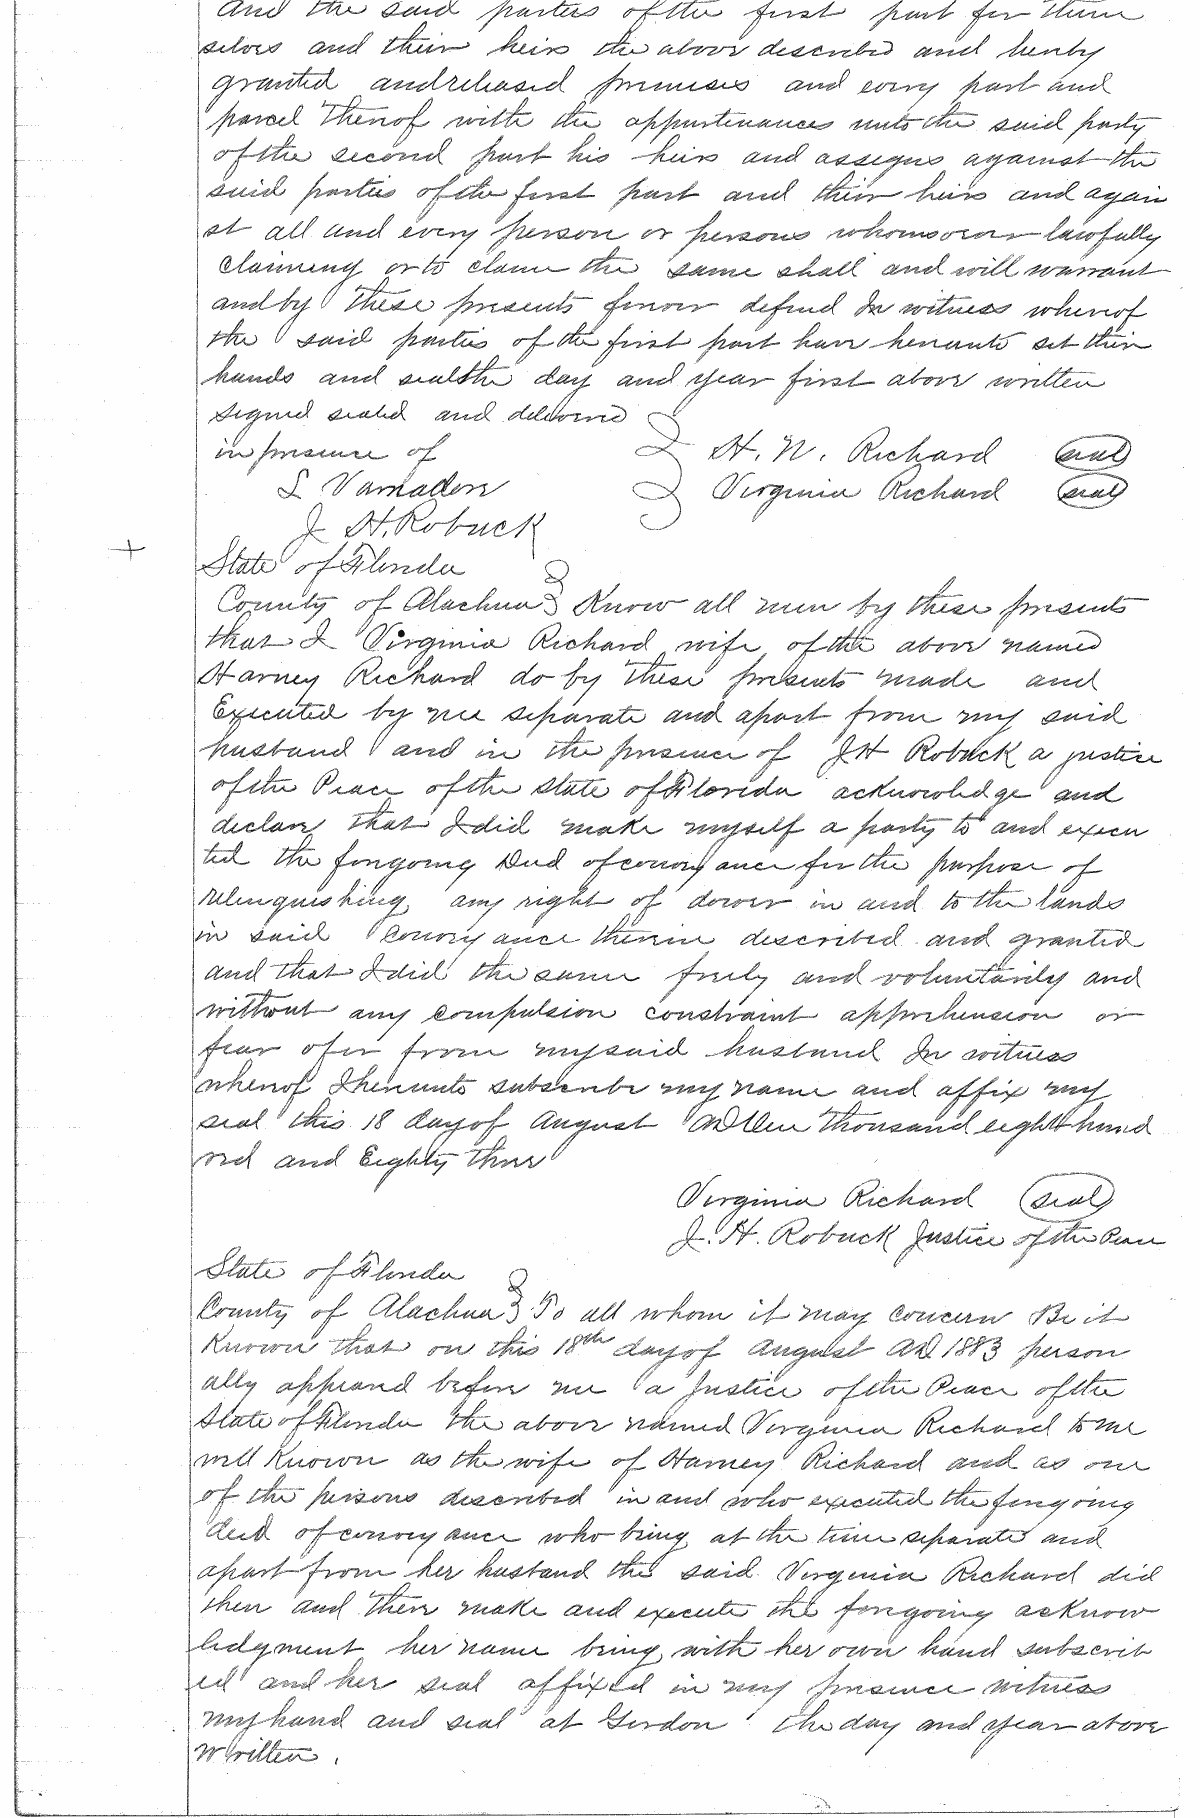 And the said parties of the first part for them
selves and their heirs the above described and hereby
granted and released premises and every part and
parcel thereof with the appurtenances unto the said party
of the second part his heirs and assigns against the
said parties of the first part and their heirs and again
st all and every person or persons whomsoever lawfully
claiming or to claim the same shall and will warrant
and by these presents forever defend In witness whereof
the said parties of the first part have hereunto set their
hands and seals the day and year first above written
Signed sealed and delivered
in presence of
H. N. Richard (seal)
L Varnadon
Virginia Richard (seal)
J H. Robuck
State of Florida
County of Alachua } Know all men by these presents
that I Virginia Richard wife of the above named
Harney Richard do by these presents made and
Executed by me separate and apart from my said
husband and in the presence of J H Robuck a justice
of the Peace of the State of Florida acknowledge and
declare that I did make myself a party to and execu
ted the foregoing Deed of conveyance for the purpose of
relinquishing any right of dower in and to the lands
in said Conveyance therein described and granted
and that I did the same freely and voluntarily and
without any compulsion constraint apprehension or
fear of or from my said husband In witness
whereof I hereunto subscribe my name and affix my
seal this 18 day of August AD One thousand eight hund
red and Eighty three
Virginia Richard (seal)
J. H. Robuck Justice of the Peace
State of Florida
County of Alachua } To all whom it may concern Be it
Known that on this 18th day of August AD 1883 person
ally appeared before me a Justice of the Peace of the
State of Florida the above named Virginia Richard to me
well Known as the wife of Harney Richard and as one
of the persons described in and who executed the foregoing
deed of conveyance who being at the time separate and
apart from her husband the said Virginia Richard did
then and there make and execute the foregoing acknow
ledgment her name being with her own hand subscrib
ed and her seal affixed in my presence witness
my hand and seal at Gordon the day and year above
Written.